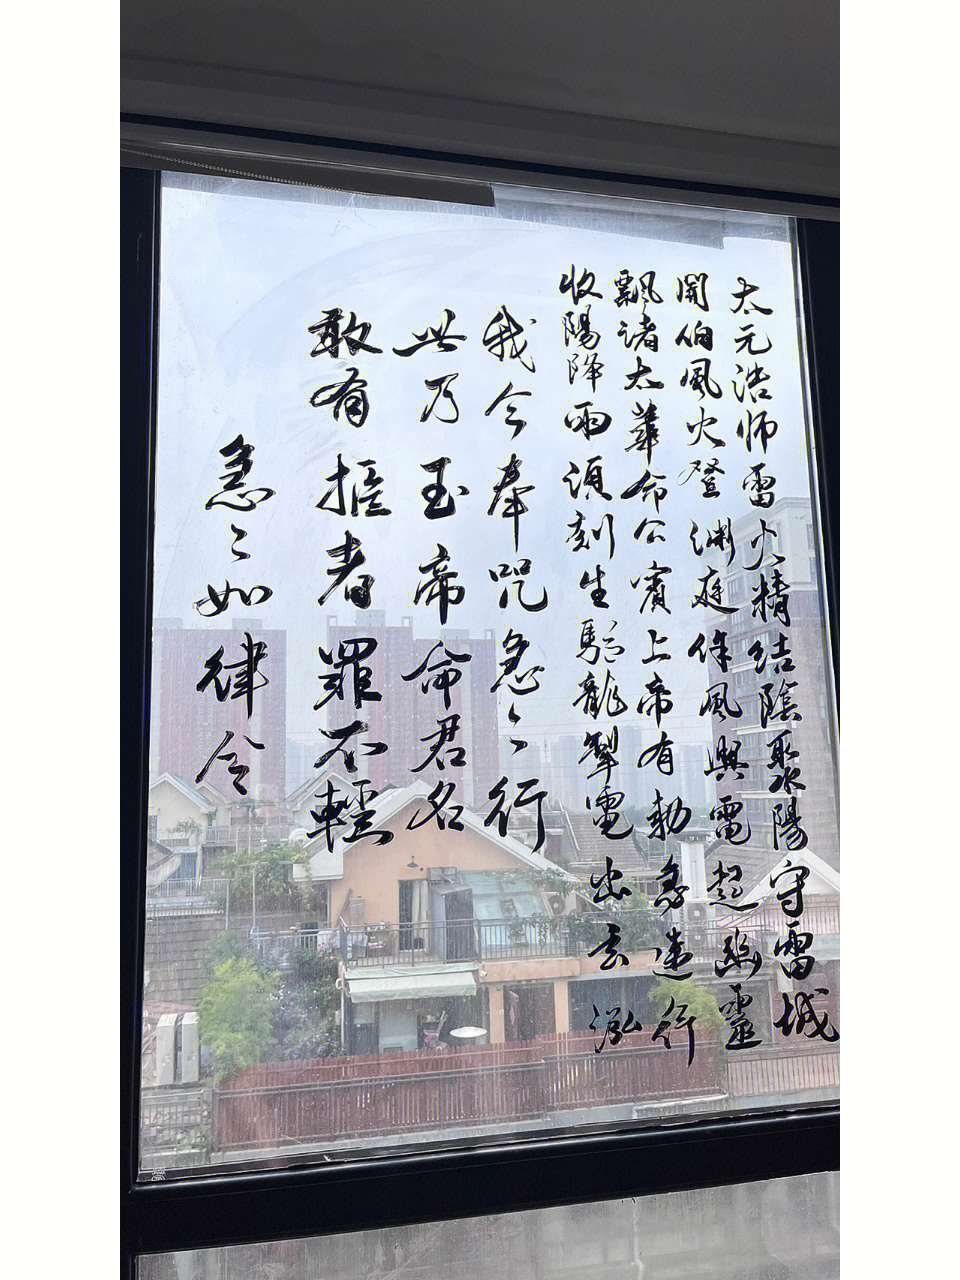 太元浩师雷火精结陰聚陽守雷城
關伯風火登渊庭作風興電起幽靈
飄诸太華命公賓上帝有勅急速行
收陽降雨頃刻生驅龍掣電出玄泓
我今奉咒急々行
此乃玉帝命君名
敢有拒者罪不輕
急々如律令